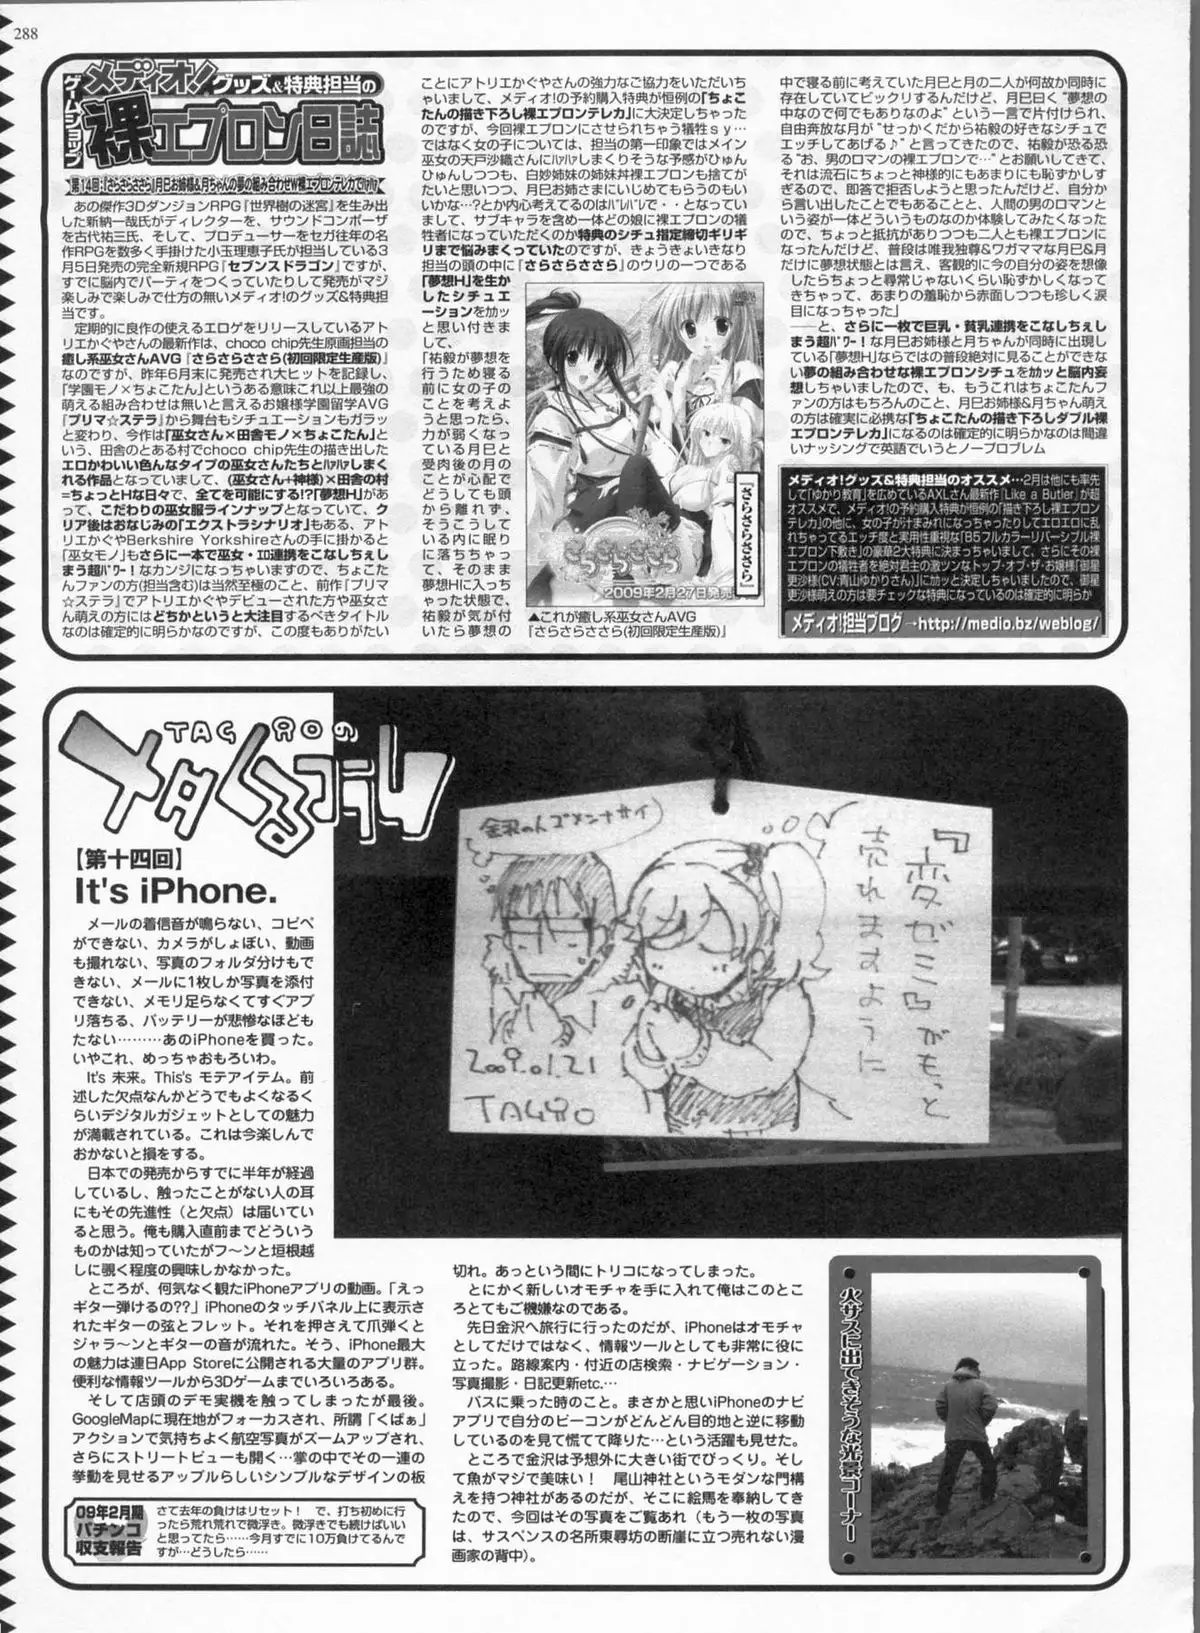 288
ゲームショップ
メディオ!グッズ&特典担当の
裸エプロン日誌
第14回:『さらさらささら』月巳お姉様&月ちゃんの夢の組み合わせW裸エプロンテレカでハァハァ
あの傑作3DダンジョンRPG『世界樹の迷宮』を生み出
した新納一哉氏がディレクターを、サウンドコンポーザ
を古代祐三氏、そして、プロデューサーをセガ往年の名
作RPGを数多く手掛けた小玉理恵子氏が担当している3
月5日発売の完全新規RPG『セブンスドラゴン』ですが、
すでに脳内でパーティをつくっていたりして発売がマジ
楽しみで楽しみで仕方の無いメディオ!のグッズ&特典担
当です。
定期的に良作の使えるエロゲをリリースしているアト
リエかぐやさんの最新作は、choco chip先生原画担当の
癒し系巫女さんAVG『さらさらささら(初回限定生産版)』
なのですが、昨年6月末に発売され大ヒットを記録し、
「学園モノ×ちょこたん」というある意味これ以上最強の
萌える組み合わせは無いと言えるお嬢様学園留学AVG
『プリマ☆ステラ』から舞台もシチュエーションもガラッ
と変わり、今作は「巫女さん×田舎モノ×ちょこたん」と
いう、田舎のとある村でchoco chip先生の描き出した
エロかわいい色んなタイプの巫女さんたちとハァハァしまく
れる作品となっていまして、(巫女さん+神様)×田舎の村
=ちょっとHな日々で、全てを可能にする!?「夢想H」があ
って、こだわりの巫女服ラインナップとなっていて、ク
リア後はおなじみの「エクストラシナリオ」もある、アト
リエかぐやBerkshire Yorkshireさんの手に掛かると
「巫女モノ」もさらに一本で巫女・エロ連携をこなしちぇし
まう超パワー!なカンジになっていますので、ちょこた
んファンの方(担当含む)は当然至極のこと、前作『プリマ
☆ステラ』でアトリエかぐやデビューされた方や巫女さ
ん萌えの方にはどちかというと大注目するべきタイトル
なのは確定的に明らかなのですが、この度もありがたい
ことにアトリエかぐやさんの強力なご協力をいただいち
ゃいまして、メディオ!の予約購入特典が恒例の「ちょこ
たんの描き下ろし裸エプロンテレカ」に大決定しちゃった
のですが、今回裸エプロンにさせられちゃう犠牲sy…
ではなく女の子については、担当の第一印象ではメイン
巫女の天戸沙織さんにハァハァしまくりそうな予感がひゅん
ひゅんしつつも、白妙姉妹の姉妹丼裸エプロンも捨てが
たいと思いつつ、月巳お姉さまにいじめてもらうのもい
いかな…?とか内心考えてるのはバレバレで・・となってい
まして、サブキャラを含め一体どの娘に裸エプロンの犠
牲者になっていただくのか特典のシチュ指定締切ギリギ
リまで悩みまくっていたのですが、きょうきょいきなり
担当の頭の中に『さらさらささら』のウリの一つである
「夢想H」を生か
したシチュエ
ーションをカッ
と思い付きま
して、
「祐毅が夢想を
行うため寝る
前に女の子の
ことを考えよ
うと思ったら、
力が弱くなっ
ている月巳と
受肉後の月の
ことが心配で
どうしても頭
から離れず、
そうこうして
いる内に眠り
に落ちちゃっ
て、そのまま
夢想Hに入っち
ゃった状態で、
祐毅が気が付
いたら夢想の
さらさらささら
2009年2月27日発売
『さらさらささら』
▲これが癒し系巫女さんAVG
『さらさらささら(初回限定生産版)』
中で寝る前に考えていた月巳と月の二人が何故か同時に
存在していてビックリするんだけど、月巳曰く“夢想の
中なので何でもありなのよ”という一言で片付けられ、
自由奔放な月が“せっくだから祐毅の好きなシチュで
エッチしてあげる♪”と言ってきたので、祐毅が恐る恐
る“お、男のロマンの裸エプロンで…”とお願いしてきて、
それは流石にちょっと神様的にもあまりにも恥ずかしす
ぎるので、即答で拒否しようと思ったんだけど、自分か
ら言い出したことでもあることと、人間の男のロマンと
いう姿が一体どういうものなのか体験してみたくなった
ので、ちょっと抵抗がありつつも二人とも裸エプロンに
なったんだけど、普段は唯我独尊&ワガママな月巳&月
だけに夢想状態とは言え、客観的に今の自分の姿を想像
したらちょっと尋常じゃないくらい恥ずかしくなって
きちゃって、あまりの羞恥から赤面しつつも珍しく涙
目になっちゃった」
――と、さらに一枚で巨乳・貧乳連携をこなしちぇし
まう超パワー!な月巳お姉様と月ちゃんが同時に出現し
ている「夢想H」ならではの普段絶対に見ることができな
い夢の組み合わせな裸エプロンシチュをカッと脳内妄
想しちゃいましたので、も、もうこれはちょこたんフ
ァンの方はもちろんのこと、月巳お姉様&月ちゃん萌え
の方は確実に必携な「ちょこたんの描き下ろしダブル裸
エプロンテレカ」になるのは確定的に明らかなのは間違
いナッシングで英語でいうとノープロブレム
メディオ!グッズ&特典担当のオススメ…2月は他にも率先
して「ゆかり教育」を広めているAXLさん最新作『Like a Butler』が超
オススメで、メディオ!の予約購入特典が恒例の「描き下ろし裸エプロン
テレカ」の他に、女の子が汁まみれになっちゃったりしてエロエロに乱
れちゃってるエッチ度と実用性重視な「B5フルカラーリバーシブル裸
エプロン下敷き」の豪華2大特典に決まっちゃいまして、さらにその裸
エプロンの犠牲者を絶対君主の激ツンなトップ・オブ・ザ・お嬢様「御星
更沙様(CV:青山ゆかりさん)」にカッと決定しちゃいましたので、御星
更沙様萌えの方は要チェックな特典になっているのは確定的に明らか
メディオ!担当ブログ→http://medio.bz/weblog/
TAGROの
ナタくるコラム
【第十四回】
It's iPhone.
メールの着信音が鳴らない、コピペ
ができない、カメラがしょぼい、動画
も撮れない、写真のフォルダ分けもで
きない、メールに1枚しか写真を添付
できない、メモリ足らなくてすぐアプ
リ落ちる、バッテリーが悲惨なほども
たない………あのiPhoneを買った。
いやこれ、めっちゃおもろいわ。
It's 未来。This's モテアイテム。前
述した欠点なんかどうでもよくなるく
らいデジタルガジェットとしての魅力
が満載されている。これは今楽しんで
おかないと損をする。
日本での発売からすでに半年が経過
しているし、触ったことがない人の耳
にもその先進性（と欠点）は届いている
と思う。俺も購入直前までどういう
ものかは知っていたがフ〜ンと垣根越
しに覗く程度の興味しかなかった。
ところが、何気なく観たiPhoneアプリの動画。「えっ
ギター弾けるの??」iPhoneのタッチパネル上に表示さ
れたギターの弦とフレット。それを押さえて爪弾くと
ジャラ〜ンとギターの音が流れた。そう、iPhone最大
の魅力は連日App Storeに公開される大量のアプリ群。
便利な情報ツールから3Dゲームまでいろいろある。
そして店頭のデモ実機を触ってしまったが最後。
GoogleMapに現在地がフォーカスされ、所謂「くぱぁ」
アクションで気持ちよく航空写真がズームアップされ、
さらにストリートビューも開く…掌の中でその一連の
挙動を見せるアップルらしいシンプルなデザインの板
切れ。あっという間にトリコになってしまった。
とにかく新しいオモチャを手に入れて俺はこのとこ
ろとてもご機嫌なのである。
先日金沢へ旅行に行ったのだが、iPhoneはオモチャ
としてだけではなく、情報ツールとしても非常に役に
立った。路線案内・付近の店検索・ナビゲーション・
写真撮影・日記更新etc.…
バスに乗った時のこと。まさかと思いiPhoneのナビ
アプリで自分のビーコンがどんどん目的地と逆に移動
しているのを見て慌てて降りた…という活躍も見せた。
ところで金沢は予想外に大きい街でびっくり。そし
て魚がマジで美味い！　尾山神社というモダンな門構
えを持つ神社があるのだが、そこに絵馬を奉納してき
たので、今回はその写真をご覧あれ（もう一枚の写真
は、サスペンスの名所東尋坊の断崖に立つ売れない漫
画家の背中）。
金沢の人ゴメンナサイ
『変ゼミ』がもっと
売れますように
2009.01.21
TAGRO
09年2月期
パチンコ
収支報告
さて去年の負けはリセット！　で、打ち初めに行
ったら荒れ荒れで微浮き。微浮きでも続けばいい
と思ってたら……今月すでに10万負けてるんで
すが…どうしたら……
火サスに出てきそうな光景コーナー